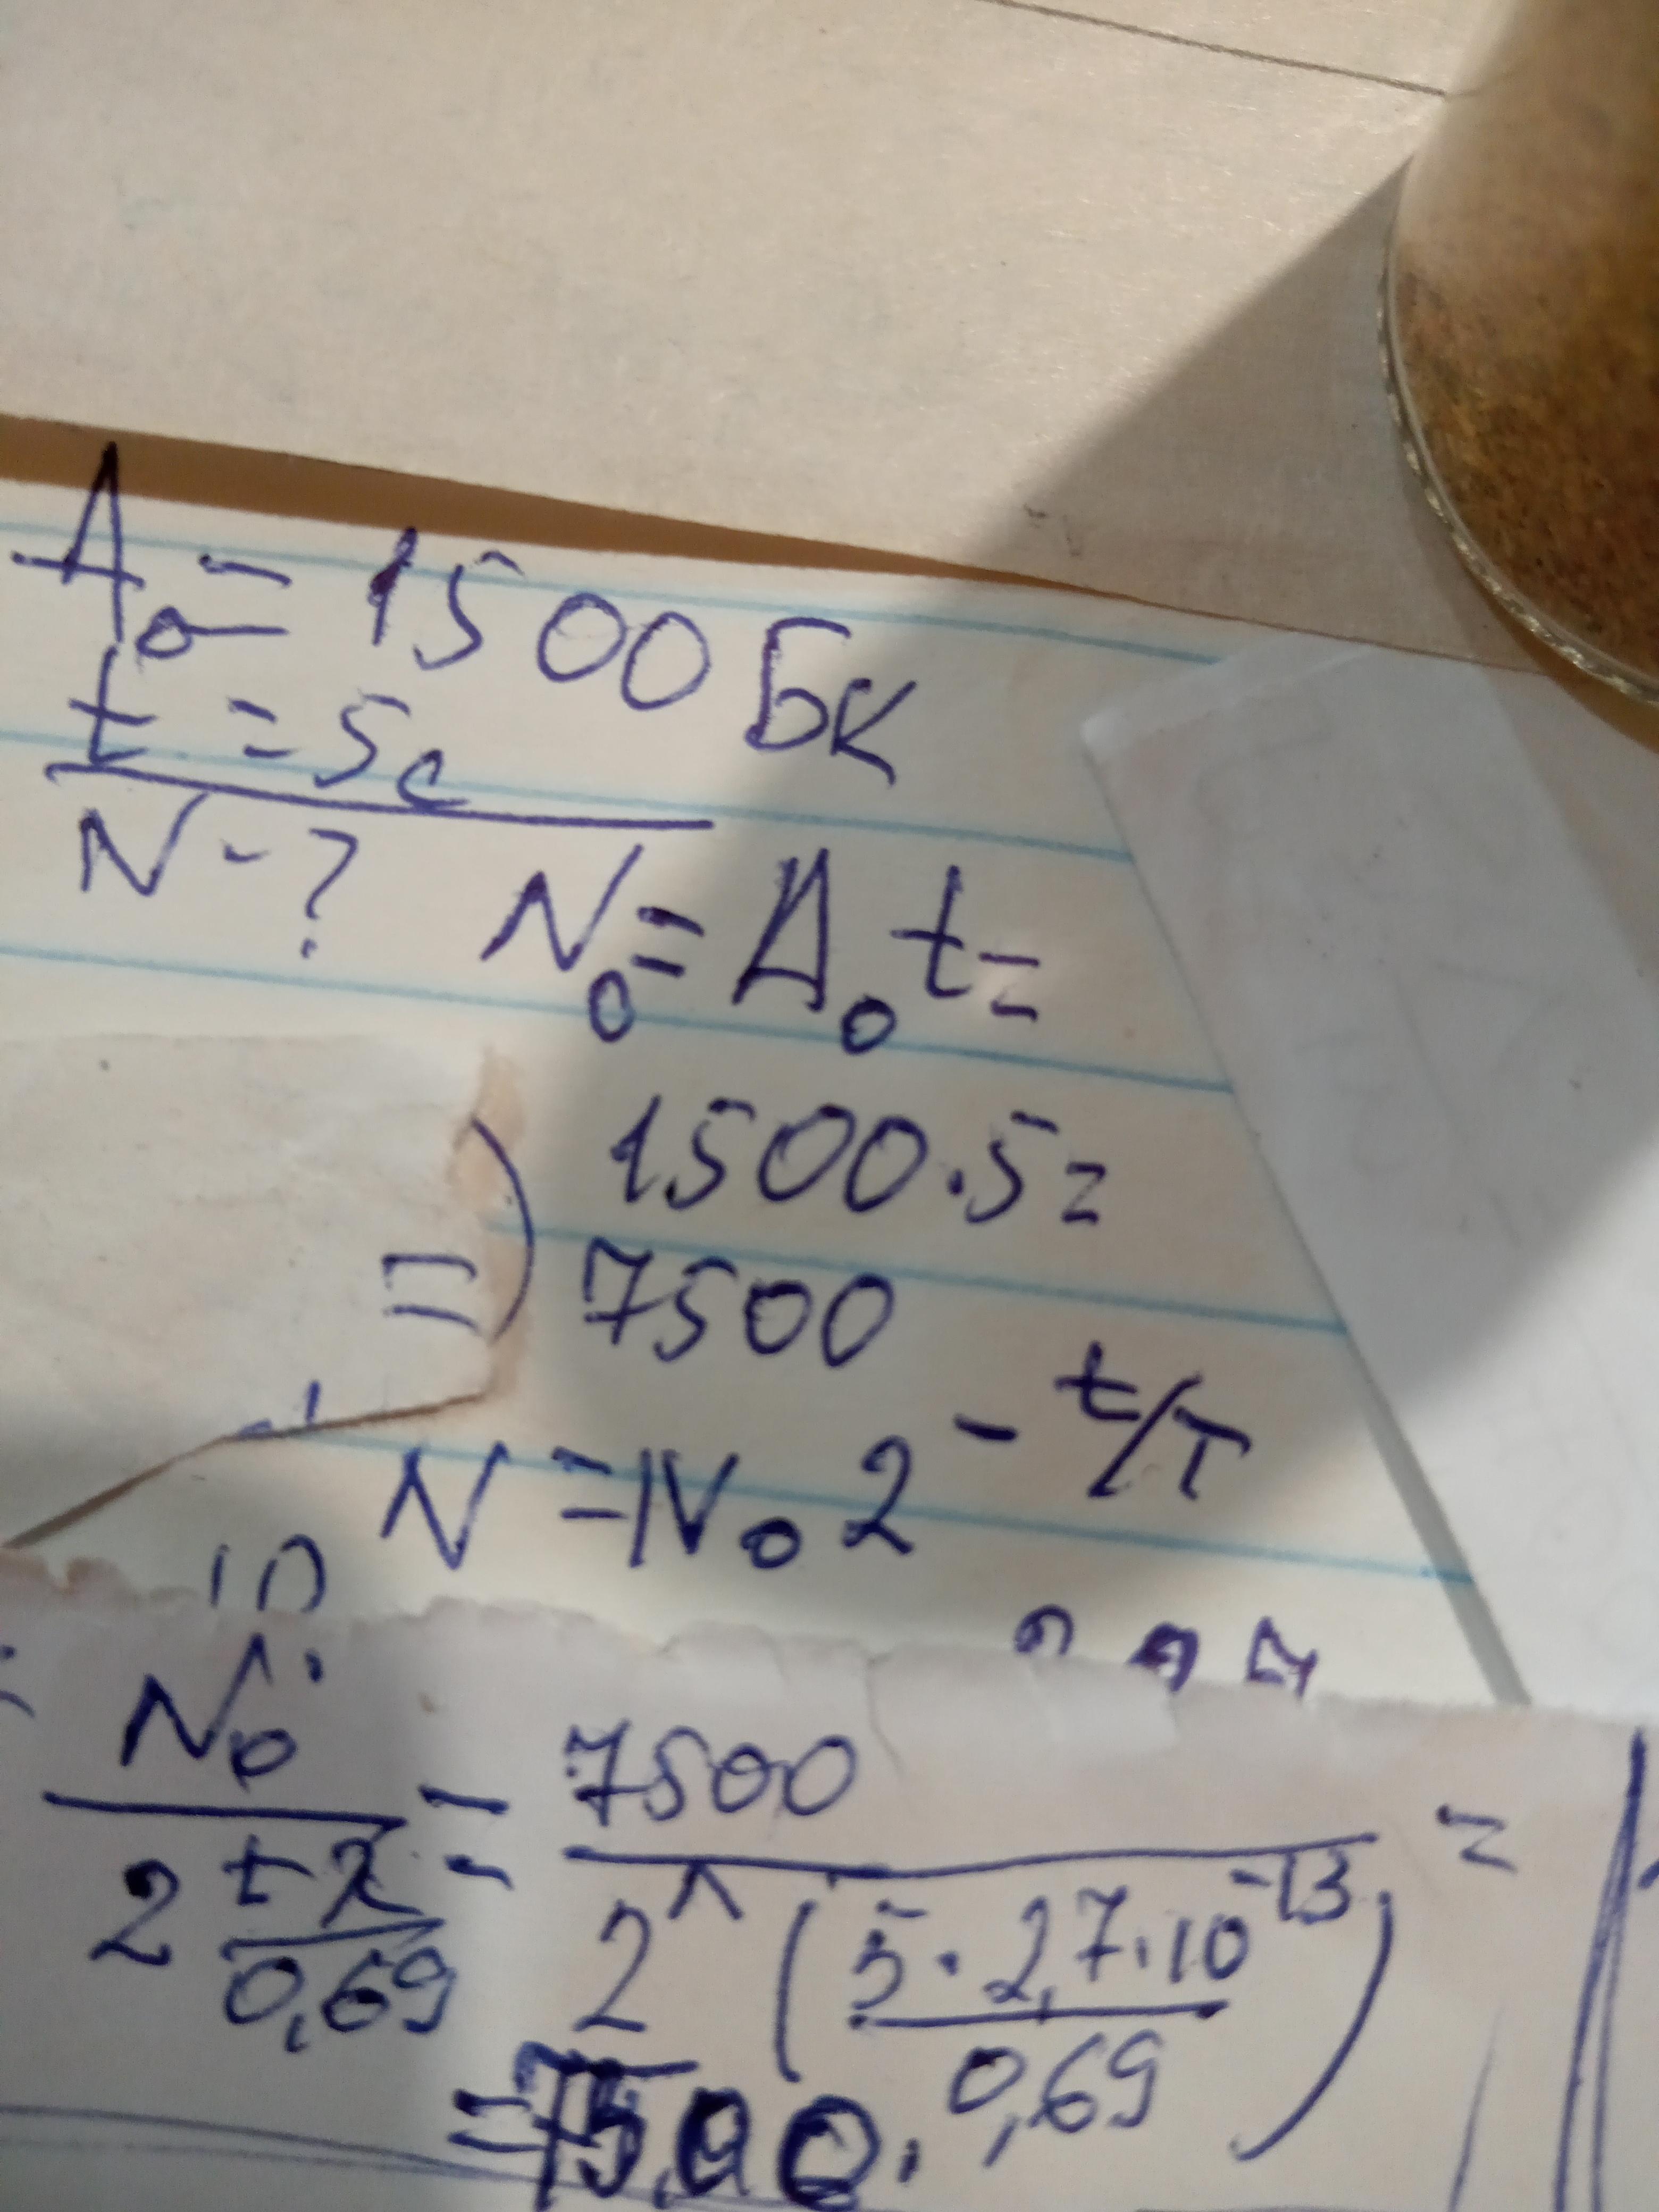 A₀ = 1500 Бк
t = 5с
N - ?
N₀ = A₀ t =
1500 · 5 =
= ) 7500
N = N₀ 2 - t/T
N₀ / 2 t λ / 0,69 = 7500 / 2 ^ ( 5 · 2,7 · 10 -13 / 0,69 ) =
= 7500.